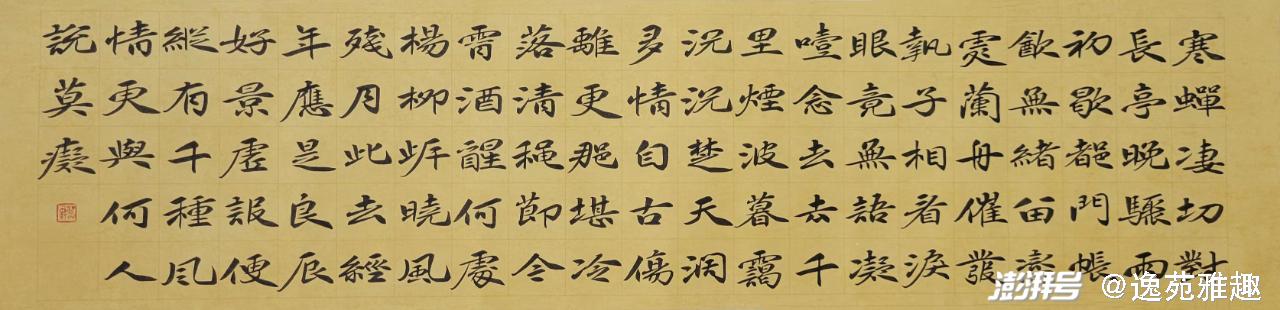 寒蟬凄切對
長亭晚驟雨
初歇都門帳
飲無緒留
處蘭舟催發
執手相看淚
眼竟無語凝
噎念去去千
里煙波暮靄
沉沉楚天闊
多情自古傷
離更那堪冷
落清秋節今
宵酒醒何處
楊柳岸曉風
殘月此去經
年應是良辰
好景虛設便
縱有千種風
情更與何人
說莫癡
澎湃号 @逸苑雅趣